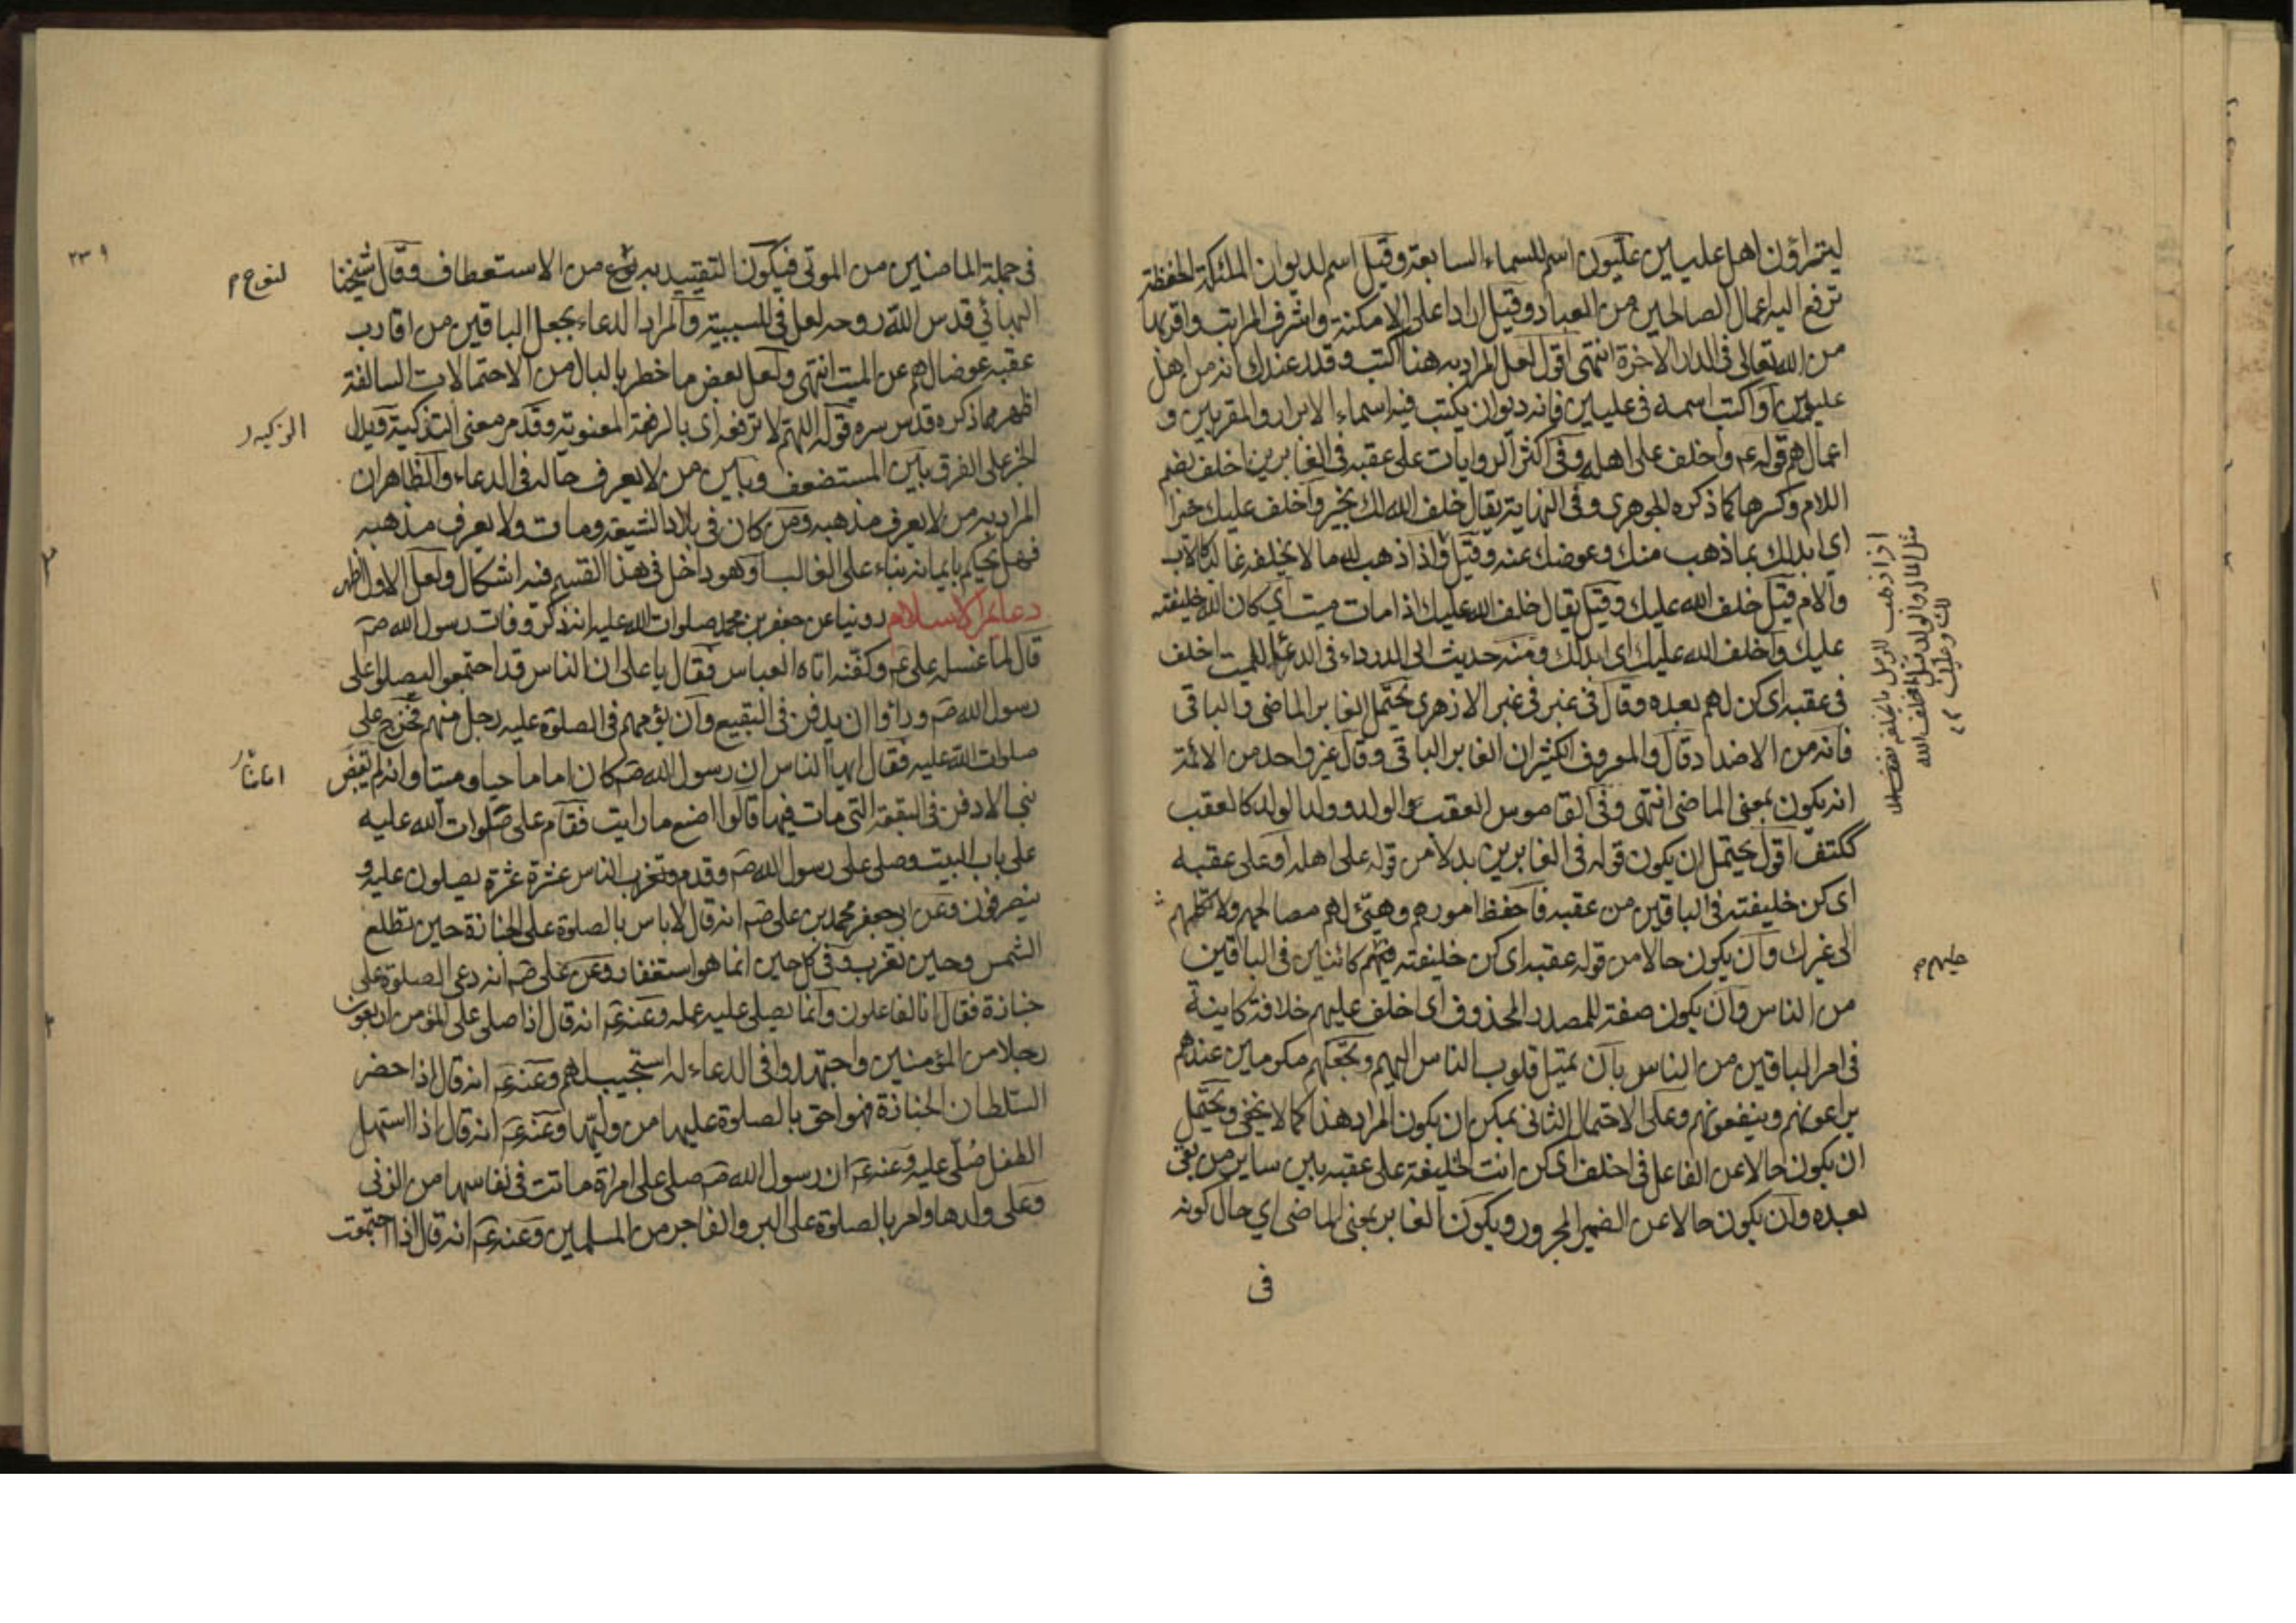 ليتراؤن اهل عليين عليون اسم للسماء السابعة وقيل اسم لديوان الملئكة الحفظة
ترفع اليه اعمال الصالحين من العباد وقيل اراد اعلى الامكنة واشرف المراتب واقربها
من الله تعالى فى الدار الآخرة انتهى اقول لعل المراد به هنا اكتب وقدر عندك انه من اهل
عليين او اكتب اسمه فى عليين فانه ديوان يكتب فيه اسماء الابرار والمقربين و
اعمالهم قوله ع واخلف على اهله وفى اكثر الروايات على عقبه فى الغابرين اخلف بضم
اللام وكسرها كما ذكره الجوهرى وفى النهاية يقال خلف الله لك بخير واخلف عليك خيرا
اى ابدلك بما ذهب منك وعوضك عنه وقيل اذا ذهب له ما لا يخلفه غالبا كالاب
والام قيل خلف الله عليك وقيل يقال خلف الله عليك اذا مات ميت اى كان الله خليفته
عليك واخلف الله عليك اى ابدلك ومنه حديث ابى الدرداء فى الدعاء للميت اخلف
فى عقبه اى كن لهم بعده وقال فى غبر فى غبر الازهرى يحتمل الغابر الماضى والباقى
فانه من الاضداد قال والمعروف الكثير ان الغابر الباقى وقال غير واحد من الائمة
انه يكون بمعنى الماضى انتهى وفى القاموس العقب الولد وولد الولد كالعقب
ككتف اقول يحتمل ان يكون قوله فى الغابرين بدلا من قوله على اهله او على عقبه
اى كن خليفته فى الباقين من عقبه فاحفظ امورهم وهيئ لهم مصالحهم ولا تكلهم
الى غيرك وان يكون حالا من قوله عقبه اى كن خليفته فيهم كائنين فى الباقين
من الناس وان يكون صفة للمصدر المحذوف اى اخلف عليهم خلافة كاينة
فى امر الباقين من الناس بان تميل قلوب الناس اليهم وتجعلهم مكرمين عندهم
يراعونهم وينفعونهم وعلى الاحتمال الثانى يمكن ان يكون المراد هذا كما لا يخفى ويحتمل
ان يكون حالا عن الفاعل فى اخلف اى كن انت الخليفة على عقبه بين ساير من بقى
بعده وان يكون حالا عن الضمير المجرور ويكون الغابر بمعنى الماضى اى حال كونه
فى
اذا ذهب للرجل ما يخلفه
مثل المال والولد قيل اخلف الله
لك وعليك
عليهم
فى جملة الماضين من الموتى فيكون التقييد به لنوع من الاستعطاف وقال شيخنا
البهائي قدس الله روحه لعل فى للسببية والمراد الدعاء بجعل الباقين من اقارب
عقبه عوضا لهم عن الميت انتهى ولعل بعض ما خطر بالبال من الاحتمالات السالفة
اظهر مما ذكره قدس سره قوله اللهم لا ترفعه اى بالرفعة المعنوية وقد مر معنى التذكية فيدل
الخبر على الفرق بين المستضعف وبين من لا يعرف حاله فى الدعاء والظاهر ان
المراد به من لا يعرف مذهبه ومن كان فى بلاد الشيعة ومات ولا يعرف مذهبه
فهل يحكم بايمانه بناء على الغالب او هو داخل فى هذا القسم فيه اشكال ولعل الاول اظهر
دعايم الاسلام روينا عن جعفر بن محمد صلوات الله عليه انه ذكر وفات رسول الله ص
قال لما غسله على ع وكفنه اتاه العباس فقال يا على ان الناس قد اجتمعوا ليصلوا على
رسول الله ص وراوا ان يدفن فى البقيع وان يؤمهم فى الصلوة عليه رجل منهم فخرج على
صلوات الله عليه فقال ايها الناس ان رسول الله ص كان اماما حيا وميتا وانه لم يقبض
نبى الا دفن فى البقعة التى مات فيها قالوا اصنع ما رايت فقام على صلوات الله عليه
على باب البيت وصلى على رسول الله ص وقدم الناس عشرة عشرة يصلون عليه و
ينصرفون وعن ابى جعفر محمد بن على ص انه قال لا باس بالصلوة على الجنازة حين تطلع
الشمس وحين تغرب وفى كل حين انما هو استغفار وعن على ص انه دعى الصلوة على
جنازة فقال انا لفاعلون وانما يصلى عليه عمله وعنه ع انه قال اذا صلى على المؤمن اربعون
رجلا من المؤمنين واجتهدوا فى الدعاء له استجيب لهم وعنه ع انه قال اذا حضر
السلطان الجنازة فهو احق بالصلوة عليها من وليها وعنه ع انه قال اذا استهل
الطفل صلى عليه وعنه ع ان رسول الله ص صلى على امراة ماتت فى نفاسها من الزنى
وعلى ولدها وامر بالصلوة على البر والفاجر من المسلمين وعنه ع انه قال اذا اجتمعت
لنوع
٢٣٩